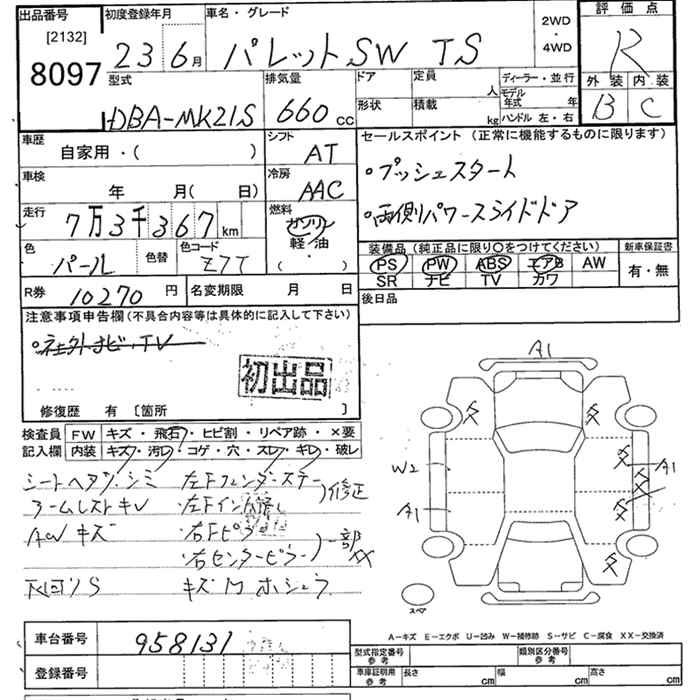 出品番号
[2132]
8097
初度登録年月
23 6月
車名・グレード
パレットSW TS
2WD
・
4WD
評価点
R
外装 内装
B C
型式
DBA-MK21S
排気量
660 cc
ドア
形状
定員 人
積載 kg
ディーラー・並行
モデル年式 年
ハンドル 左・右
車歴
自家用・( )
シフト
AT
車検
年 月( 日)
冷房
AAC
走行
7万3千367 km
燃料
ガソリン
軽油
・
( )
色
パール
色替
色コード
Z7T
R券 10270 円
名変期限 月 日
セールスポイント (正常に機能するものに限ります)
・プッシュスタート
・両側パワースライドドア
装備品(純正品に限り○をつけてください)
PS PW ABS エアB AW
SR ナビ TV カワ
新車保証書
有・無
後日品
注意事項申告欄(不具合内容等は具体的に記入して下さい)
・社外ナビ・TV
初出品
修復歴 有 [箇所 ]
検査員記入欄
FW キズ・飛石・ヒビ割・リペア跡・×要
内装 キズ・汚レ・コゲ・穴・スレ・キレ・破レ
シートヘタリ・シミ
アームレストキレ
AWキズ
下回りS
・左Fフェンダーステー
・左Fイン
)修正
・右Fピラー
・右センターピラー
)一部XX
キズ
A1
W2
A1
A1
スペア
A-キズ E-エクボ U-凹み W-補修跡 S-サビ C-腐食 XX-交換済
車台番号 958131
登録番号
型式指定番号
参考
類別区分番号
参考
車庫証明用
参考
長さ cm
幅 cm
高さ cm